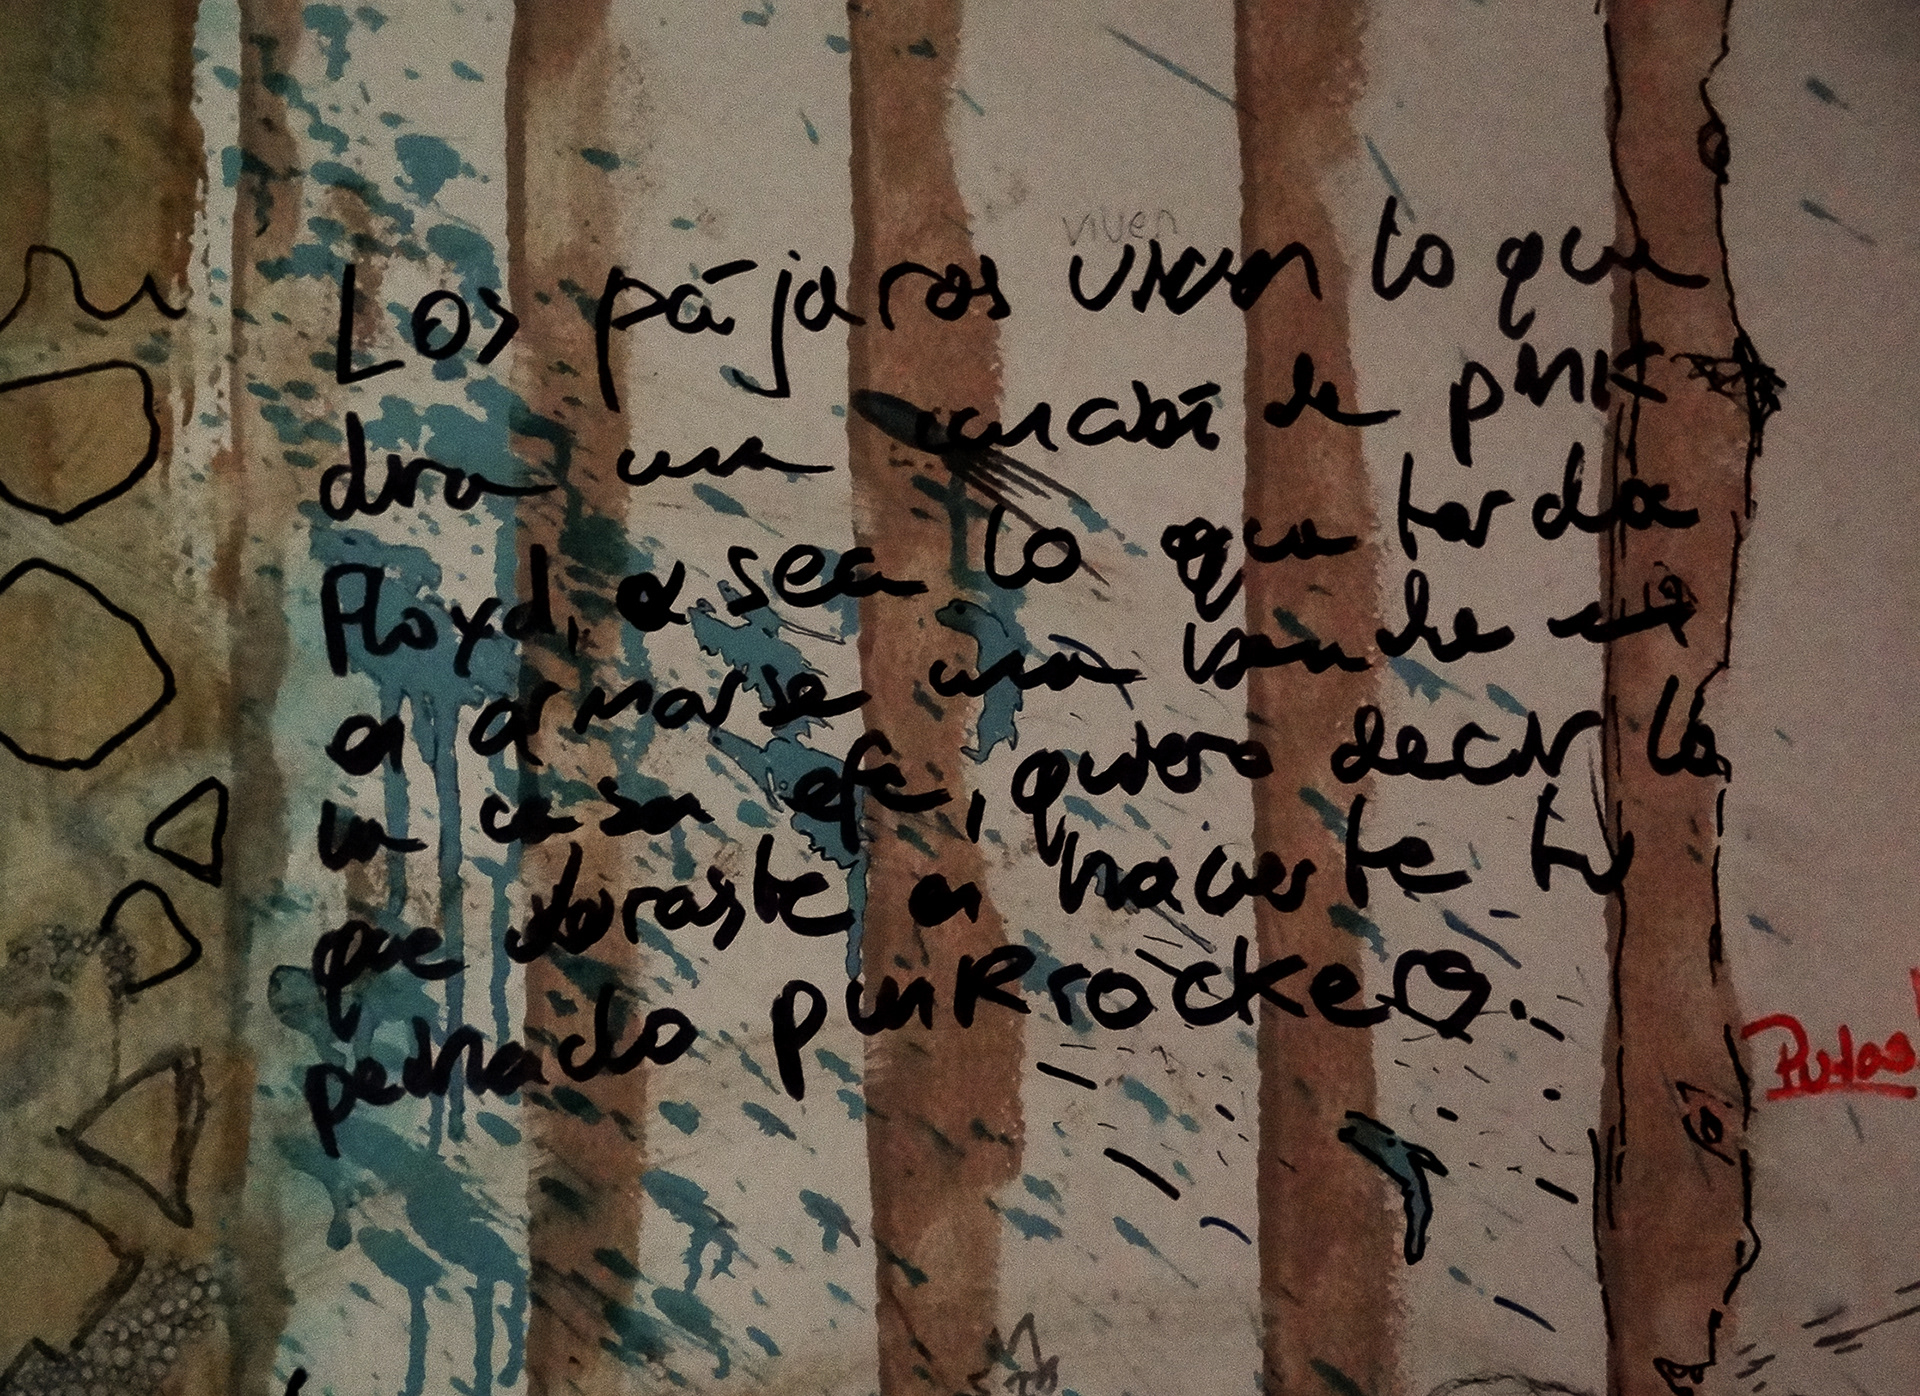 viven
Los pájaros viven lo que
dura una canción de pink
Floyd, o sea lo que tarda
en armarse una banda en
la casa efe, quiero decir lo
que duraste en hacerte tu
peinado punkrocker.
Putas